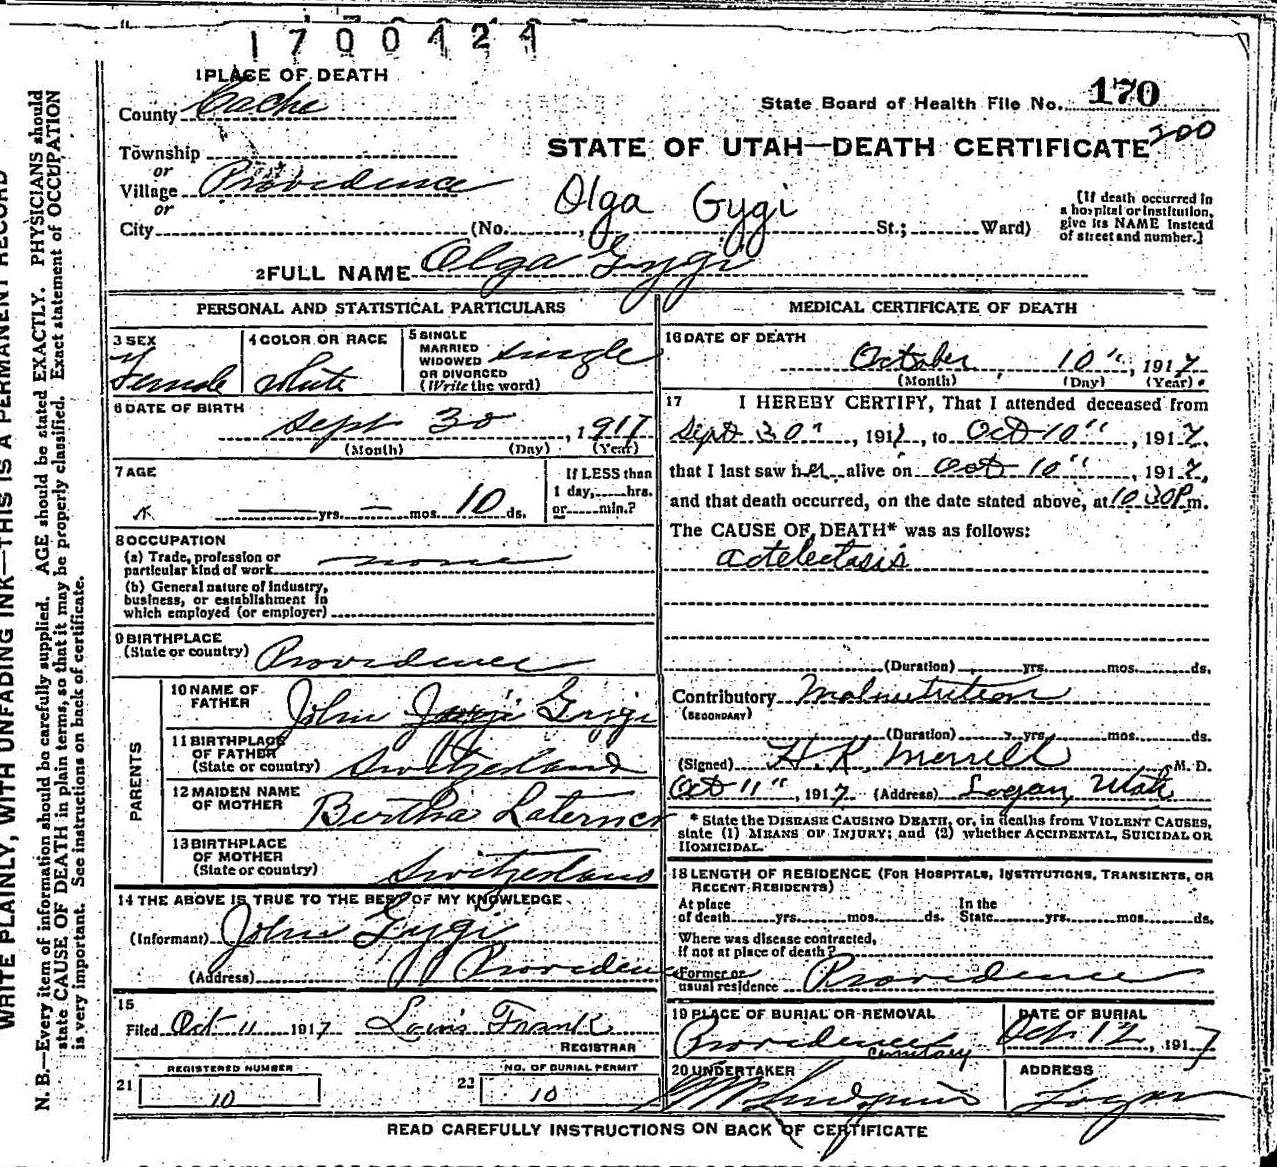 1700424
1 PLACE OF DEATH
County Cache
State Board of Health File No. 170
200
STATE OF UTAH—DEATH CERTIFICATE
Township
or
Village Providence
or
City (No. , St.; Ward)
Olga Gygi
[If death occurred in
a hospital or institution,
give its NAME instead
of street and number.]
2 FULL NAME Olga Gygi
PERSONAL AND STATISTICAL PARTICULARS
3 SEX
Female
4 COLOR OR RACE
White
5 SINGLE
MARRIED
WIDOWED
OR DIVORCED
(Write the word)
single
6 DATE OF BIRTH
Sept 30, 1917
(Month) (Day) (Year)
7 AGE
yrs. — mos. 10 ds.
If LESS than
1 day, hrs.
or min.?
8 OCCUPATION
(a) Trade, profession or
particular kind of work none
(b) General nature of industry,
business, or establishment in
which employed (or employer)
9 BIRTHPLACE
(State or country) Providence
PARENTS
10 NAME OF
FATHER John Gygi
11 BIRTHPLACE
OF FATHER
(State or country) Switzerland
12 MAIDEN NAME
OF MOTHER Bertha Laterner
13 BIRTHPLACE
OF MOTHER
(State or country) Switzerland
14 THE ABOVE IS TRUE TO THE BEST OF MY KNOWLEDGE
(Informant) John Gygi
(Address) Providence
15
Filed Oct 11 1917 Louis Frank
REGISTRAR
21 REGISTERED NUMBER
10
22 NO. OF BURIAL PERMIT
10
MEDICAL CERTIFICATE OF DEATH
16 DATE OF DEATH
October 10", 1917
(Month) (Day) (Year)
17 I HEREBY CERTIFY, That I attended deceased from
Sept 30", 1917, to Oct 10", 1917,
that I last saw her alive on Oct 10", 1917,
and that death occurred, on the date stated above, at 10 30 P.m.
The CAUSE OF DEATH* was as follows:
actelectasis
(Duration) yrs. mos. ds.
Contributory Malnutrition
(SECONDARY)
(Duration) yrs. mos. ds.
(Signed) H. K. Merrill M. D.
Oct 11", 1917 (Address) Logan, Utah
* State the DISEASE CAUSING DEATH, or, in deaths from VIOLENT CAUSES,
state (1) MEANS OF INJURY; and (2) whether ACCIDENTAL, SUICIDAL OR
HOMICIDAL.
18 LENGTH OF RESIDENCE (FOR HOSPITALS, INSTITUTIONS, TRANSIENTS, OR
RECENT RESIDENTS)
At place
of death yrs. mos. ds.
In the
State yrs. mos. ds.
Where was disease contracted,
if not at place of death?
Former or
usual residence Providence
19 PLACE OF BURIAL OR REMOVAL
Providence
cemetary
DATE OF BURIAL
Oct. 12, 1917
20 UNDERTAKER
ADDRESS
Logan
READ CAREFULLY INSTRUCTIONS ON BACK OF CERTIFICATE
WRITE PLAINLY, WITH UNFADING INK—THIS IS A PERMANENT RECORD
N. B.—Every item of information should be carefully supplied. AGE should be stated EXACTLY. PHYSICIANS should
state CAUSE OF DEATH in plain terms, so that it may be properly classified. Exact statement of OCCUPATION
is very important. See instructions on back of certificate.